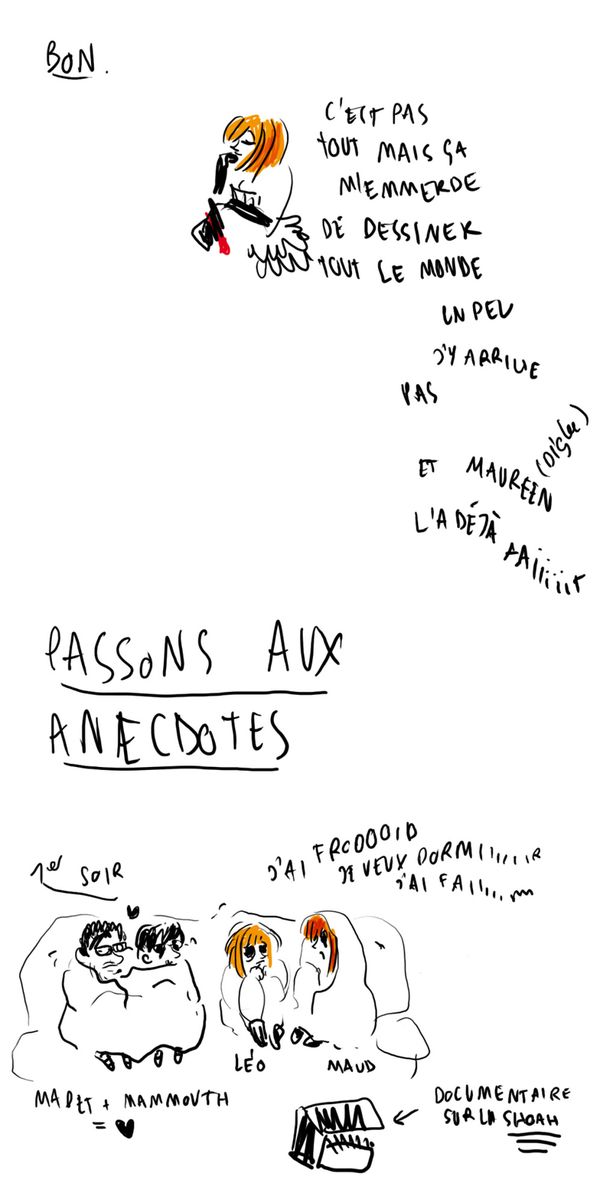 BON.
C'EST PAS
TOUT MAIS ÇA
M'EMMERDE
DE DESSINER
TOUT LE MONDE
UN PEU
J'Y ARRIVE
PAS
(DIGLEE)
ET MAUREEN
L'A DÉJÀ
FAIIIIIIT
PASSONS AUX
ANECDOTES
1er SOIR
J'AI FROOOOID
JE VEUX DORMIIIIIIR
J'AI FAIIIIIM
LÉO
MAUD
MADET + MAMMOUTH
= ♥
DOCUMENTAIRE
SUR LA SHOAH